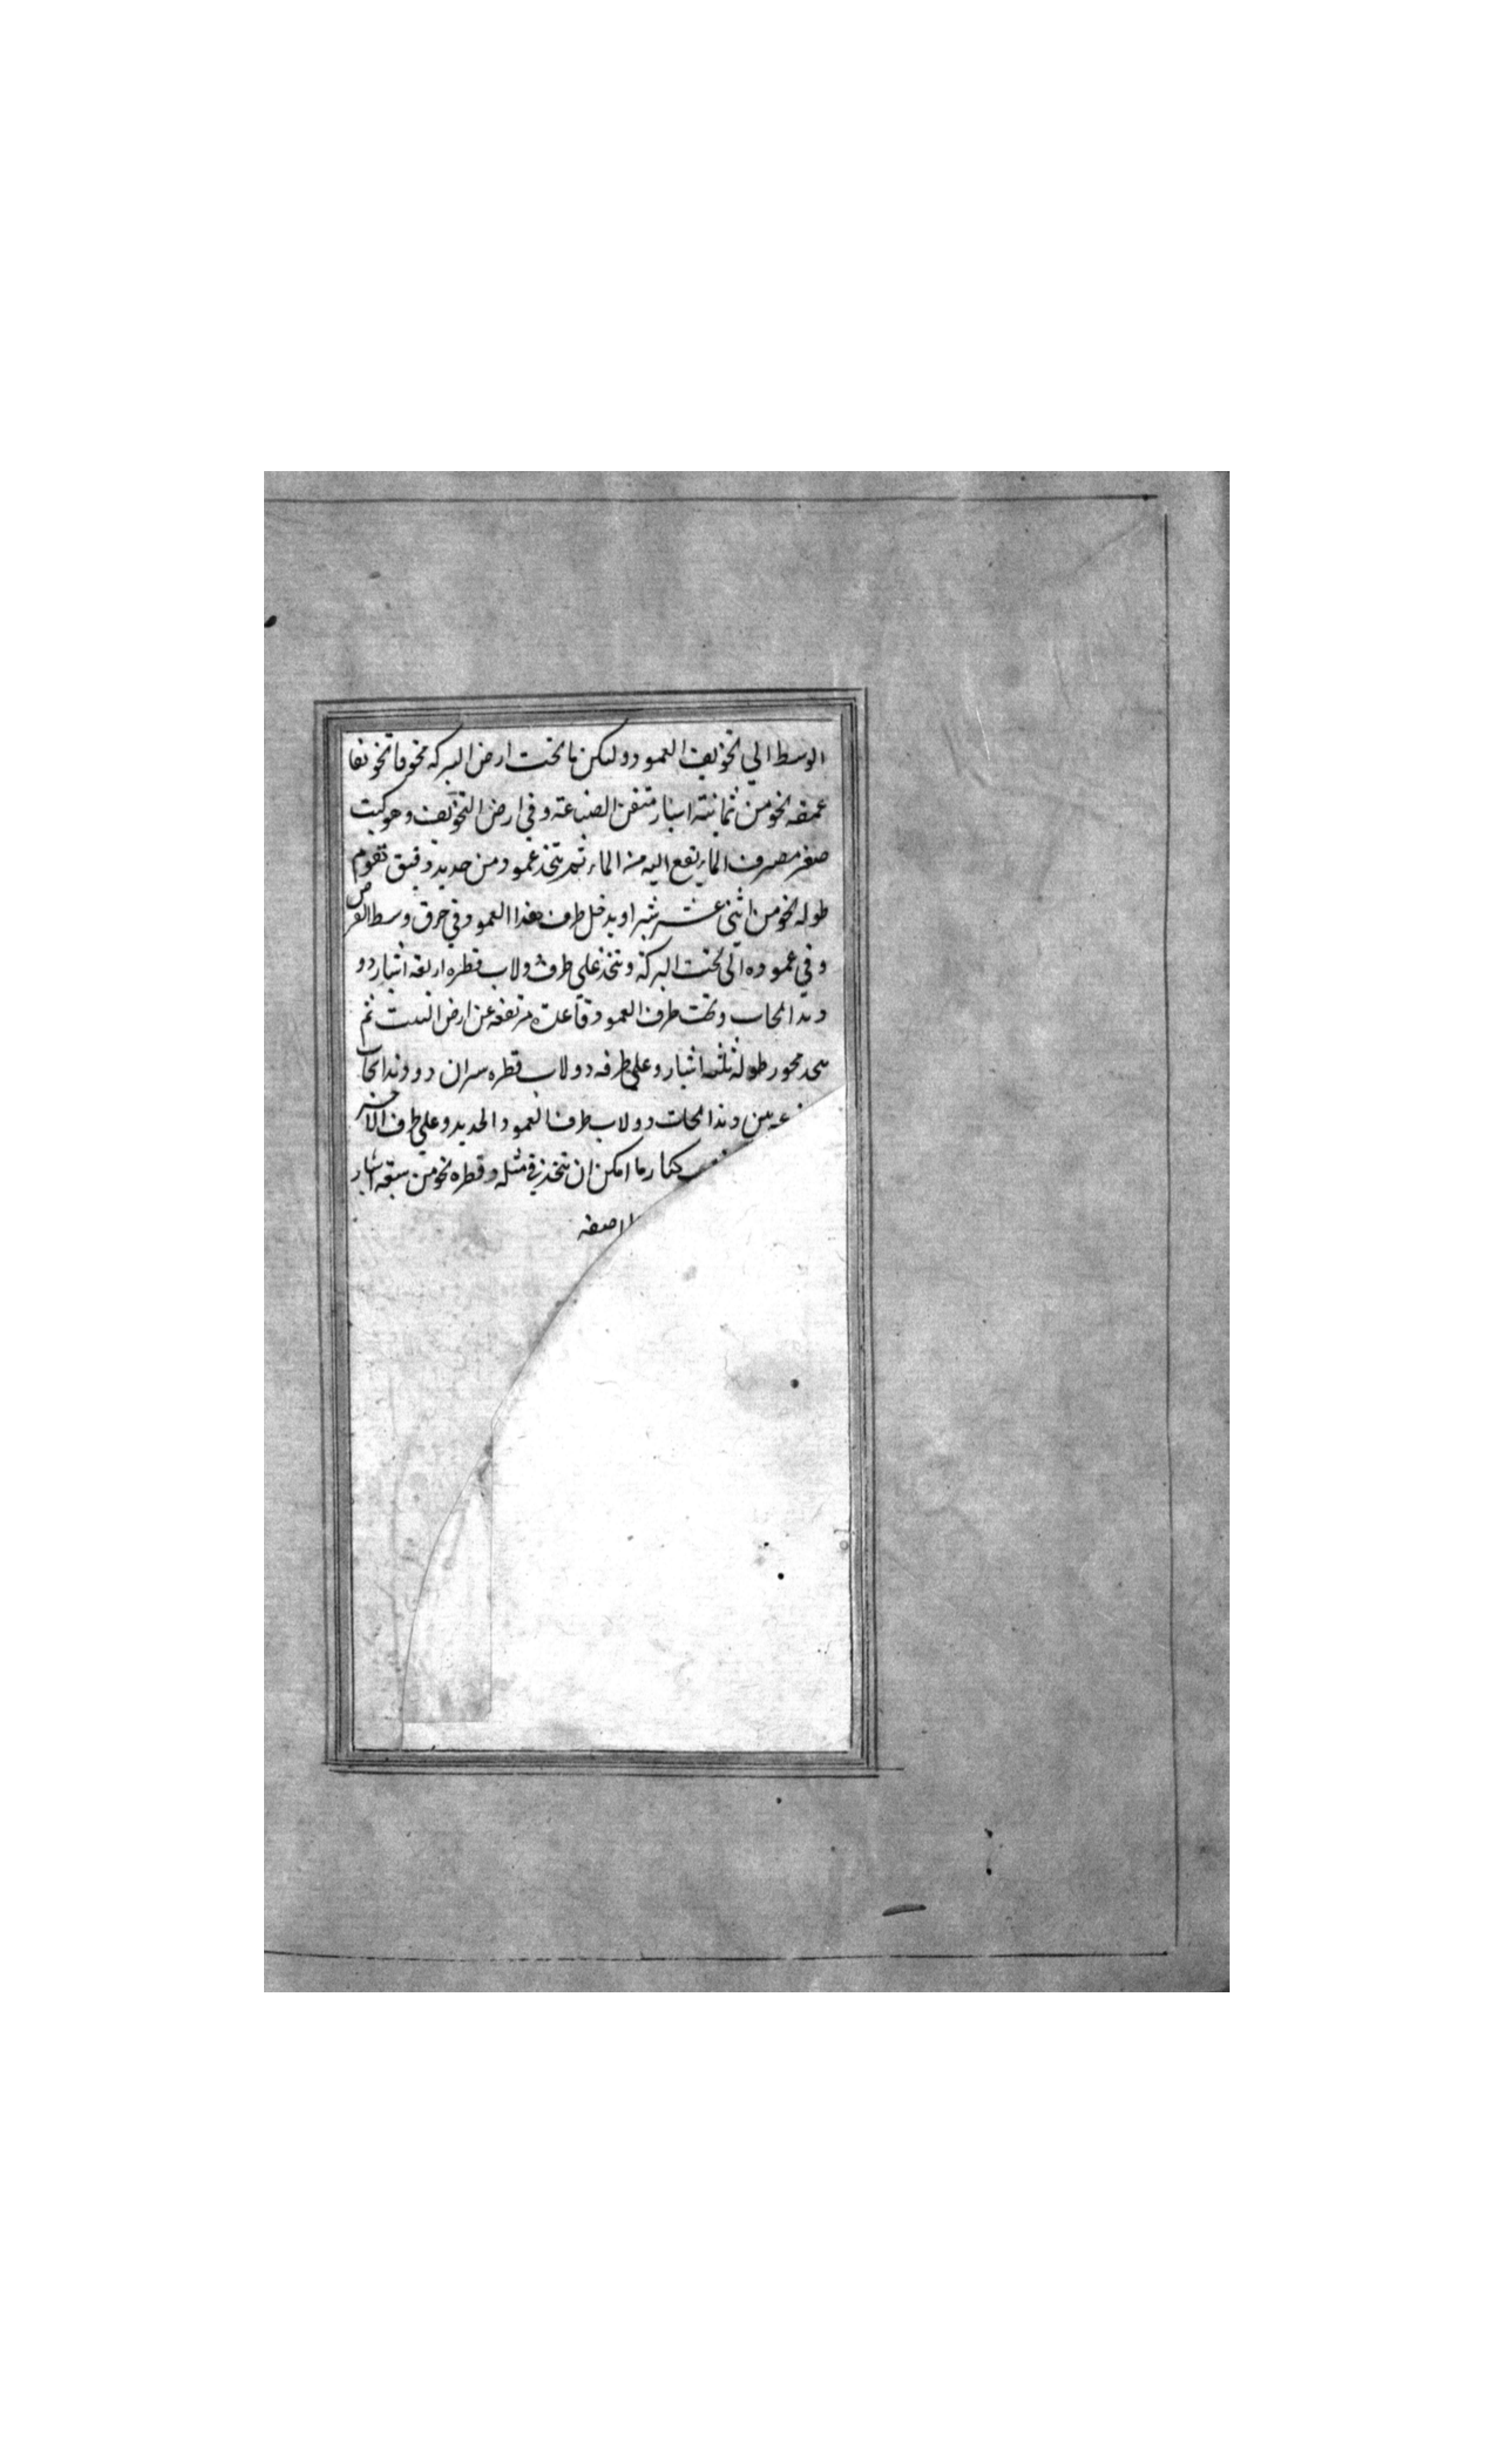 الوسط الى تجويف العمود وليكن ما تحت ارض البركة مجوفا تجويفا
عمقه نحو من ثمانية اشبار متقن الصناعة وفي ارض التجويف وهو كبيت
صغر مصرف الماء يرتفع اليه من الماء ثم يتخذ عمود من حديد دقيق تقوم
طوله نحو من اثنى عشر شبرا ويدخل طرف هذا العمود في خرق وسط القرص
وفي عموده الى تحت البركة ويتخذ على طرفه دولاب قطره اربعة اشبار ذو
دندانجات وتحت طرف العمود قاعدة مرتفعة عن ارض البيت ثم
يتخذ محور طوله ثلثه اشبار وعلى طرفه دولاب قطره شبران ذو دندانجات
بين دندانجات دولاب طرف العمود الحديد وعلى طرف الاخر
كبار ما امكن ان يتخذ في مثله وقطره نحو من سبعة اشبار
اصفه